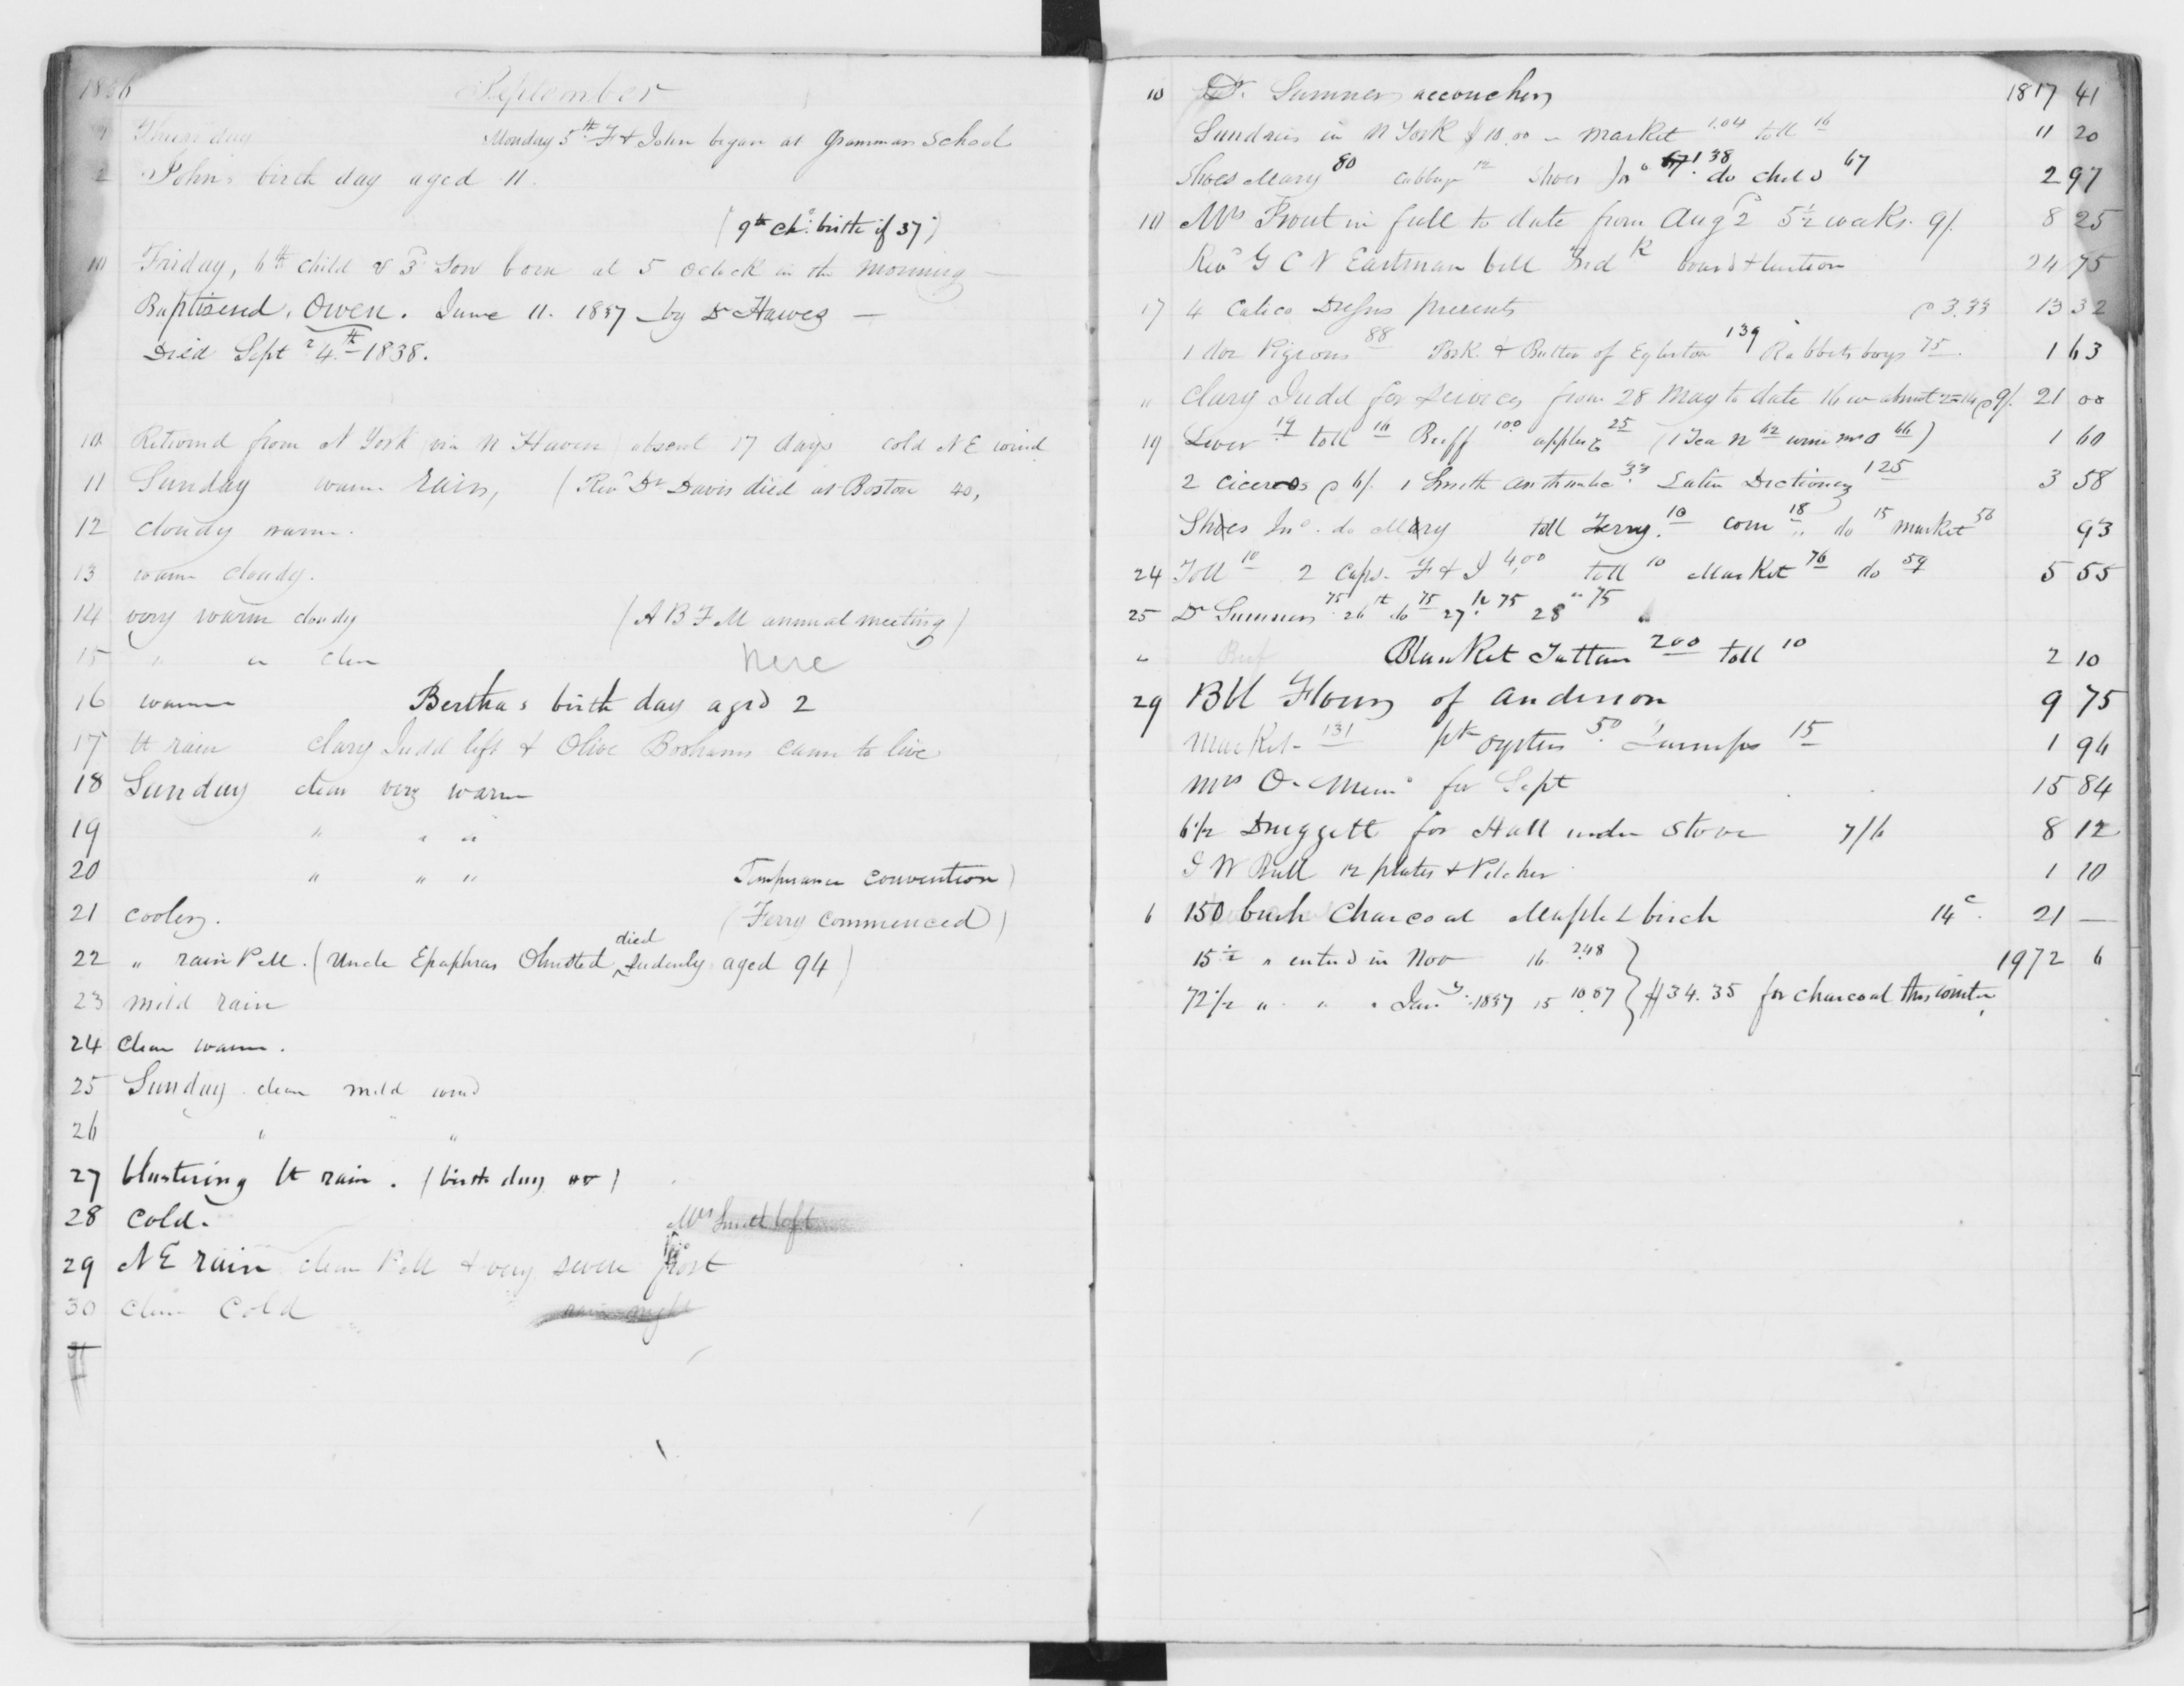 1836 September
1 Thursday Monday 5th F & John began at Grammar School
2 John's birth day aged 11.
(9th ch: birth if 37)
10 Friday, 6th child & 3d son born at 5 oclock in the morning —
Baptisend, Owen. June 11. 1837 by Dr Hawes —
Died Sept 24th 1838.
10 Returnd from N York via N Haven absent 17 days cold NE wind
11 Sunday warm rain, (Revd Dr Davis died at Boston 40,
12 cloudy warm.
13 warm cloudy.
14 very warm cloudy (A B F M annual meeting)
15 " " clear here
16 warm Bertha's birth day agd 2
17 lt rain Clary Judd left & Olive came to live
18 Sunday clear very warm
19 " " "
20 " " " Temperance convention)
21 cooler. (Ferry commenced)
22 " rain PM. (Uncle Epaphras Olmsted died sudenly aged 94)
23 mild rain
24 clear warm.
25 Sunday clear mild wind
26 " "
27 blustering lt rain. (birth day)
28 cold. Mrs Smith left
29 NE rain clear PM & very severe frost
30 clear cold rain night
31
10 Dr. Sumner accoucher 1817 41
Sundries in N York $10.00 – market 1.04 toll 16 11 20
Shoes Mary 80 cabbage 12 shoes Jno 138 do child 67 2 97
10 Mrs Trout in full to date from Augt 2 5½ weeks 9/. 8 25
Revd G C V Eastman bill Fred K board & tuition 24 75
17 4 Calico Dresses presents @ 3.33 13 32
1 doz Pigeons 88 Pork & Butter of Egleston 139 Rabbits boys 75. 1 63
" Clary Judd for services from 28 May to date 16 w absent 2=14 @ 9/. 21 00
19 Liver 19 toll 16 Beeff 100 apples 25 (1 Tea N 62 66) 1 60
2 ciceros @ 6/. 1 Smith arithmetic 33 Latin Dictionary 125 3 58
Shoes Jno. do Mary toll Ferry. 10 corn 18 do 15 market 50 93
24 Toll 10 2 caps. F & J 4,00 toll 10 Market 76 do 59 5 55
25 Dr Sumner 75 26th do 75 27th 75 28 " 75
" Beef Blanket Tattam 200 toll 10 2 10
29 Bbl Flour of Anderson 9 75
Market 131 pk oysters 50 Turnips 15 1 94
Mrs O. Mem: for Sept 15 84
6½ Druggett for Hall under stove 7/6 8 12
G W Bull 12 plates & Pitcher 1 10
6 150 bush Charcoal Maple & birch 14c. 21 —
15½ " enterd in Nov 16 2.48 1972 6
72½ " " " Jany 1837 15 10.87 } $34.35 for charcoal this winter,